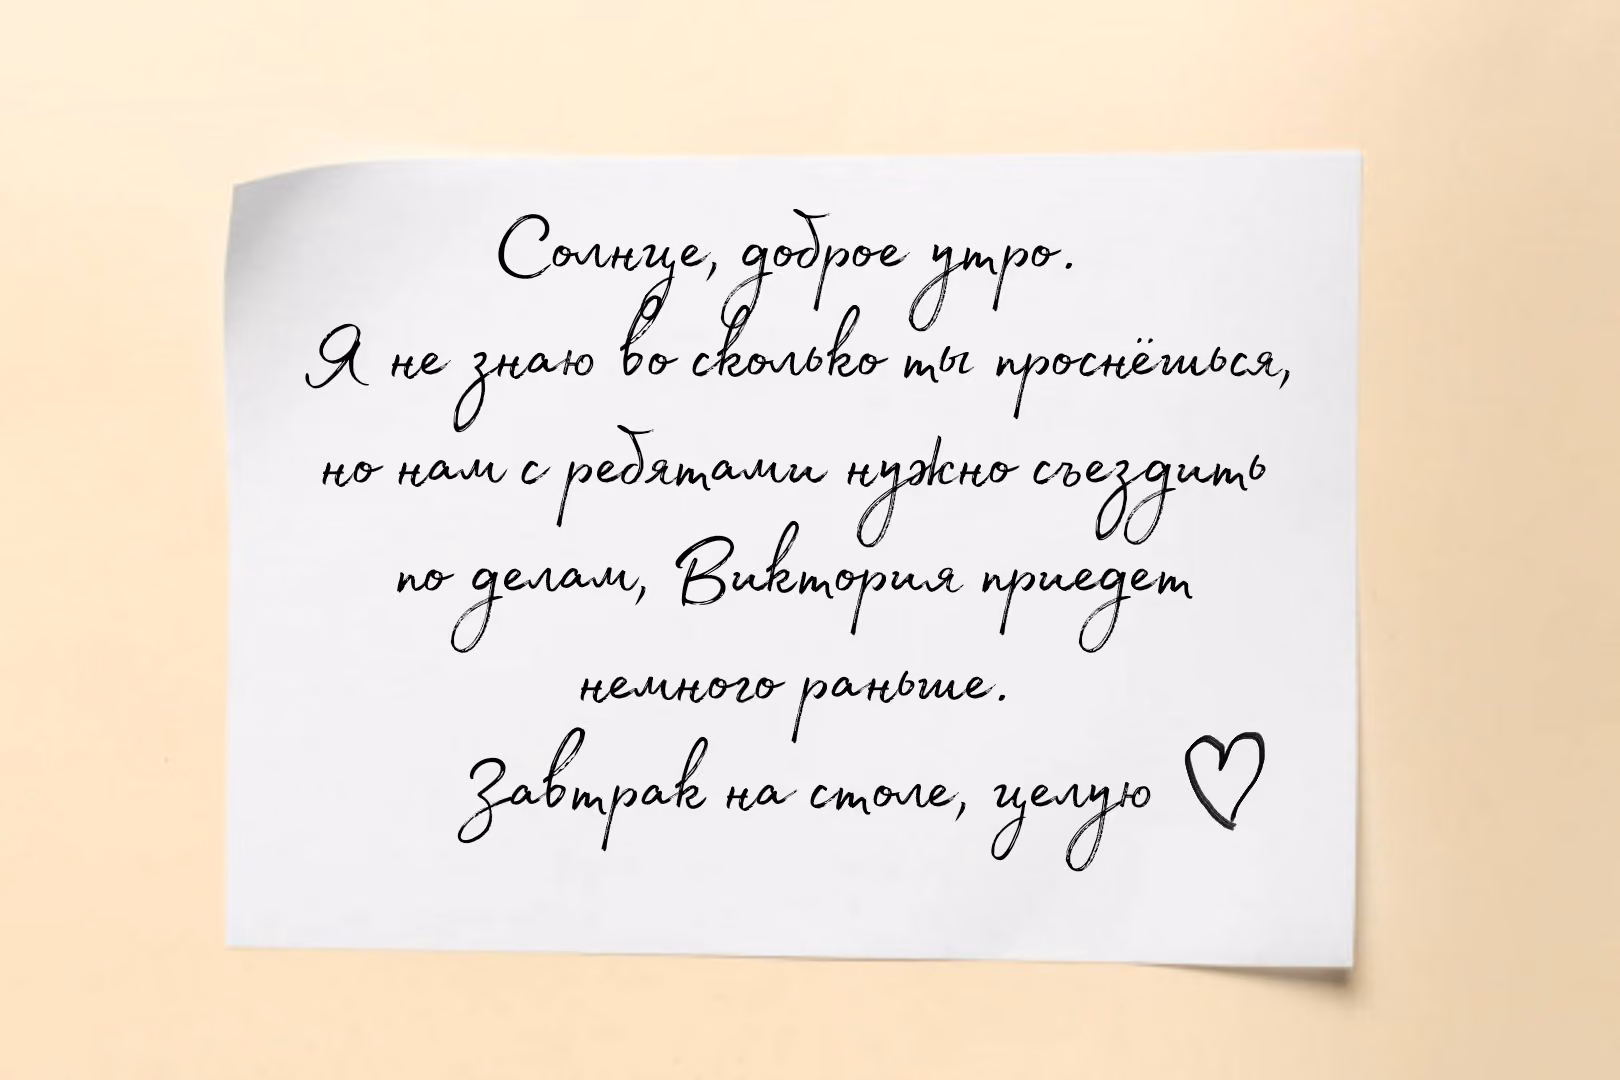 Солнце, доброе утро.
Я не знаю во сколько ты проснёшься,
но нам с ребятами нужно съездить
по делам, Виктория приедет
немного раньше.
Завтрак на столе, целую